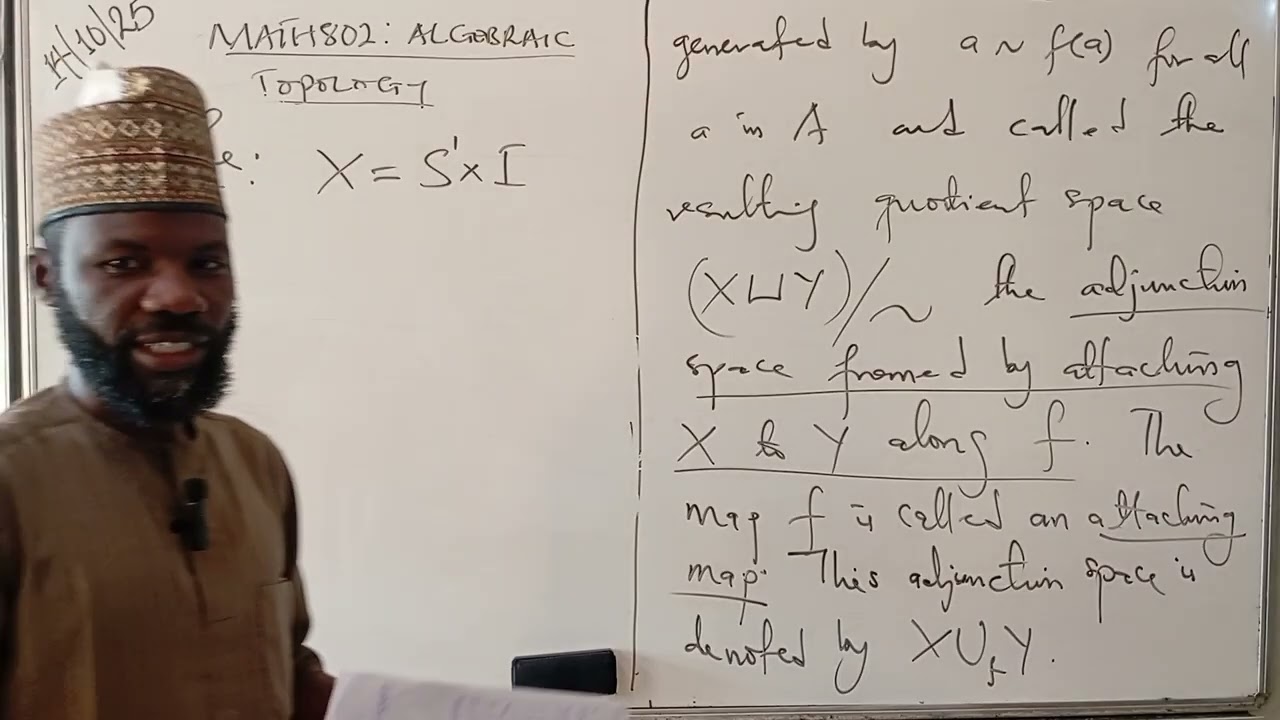 14/10/25
MATH802: ALGEBRAIC
TOPOLOGY
: X = S¹ × I
generated by a ~ f(a) for all
a in A and called the
resulting quotient space
(X ⊔ Y)/~ the adjunction
space fromed by attaching
X to Y along f. The
map f is called an attaching
map. This adjunction space is
denoted by X ∪_f Y.